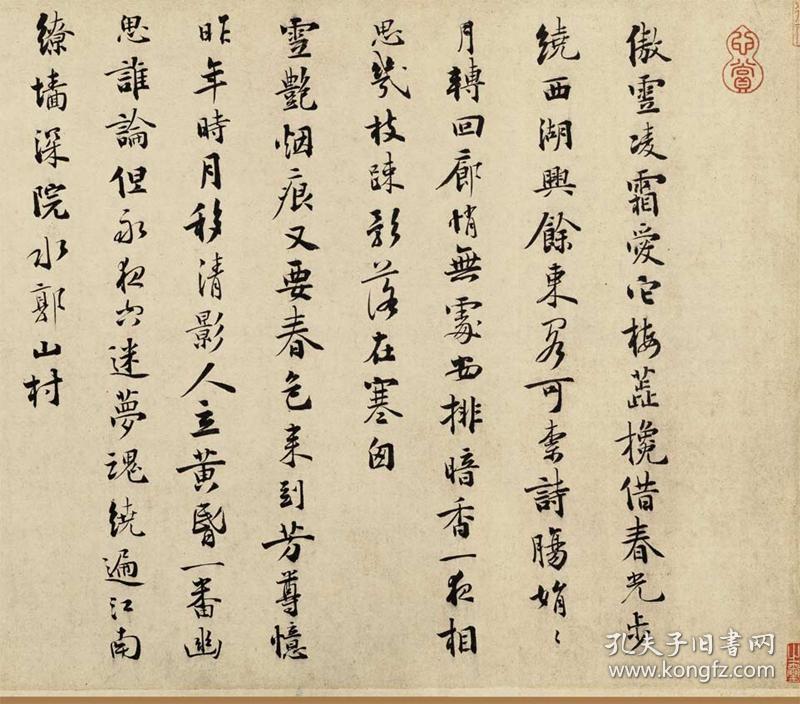 傲雪凌霜愛它梅蕊攙借春光步
繞西湖興餘東閣可柰詩腸娟〻
月轉回廊悄無處安排暗香一夜相
思幾枝疎影落在寒窗
雪艷烟痕又要春色来到芳尊憶
昨年時月移清影人立黃昏一番幽
思誰論但永夜空迷夢魂繞遍江南
繚墻深院水郭山村
心賞
孔夫子旧书网
www.kongfz.com